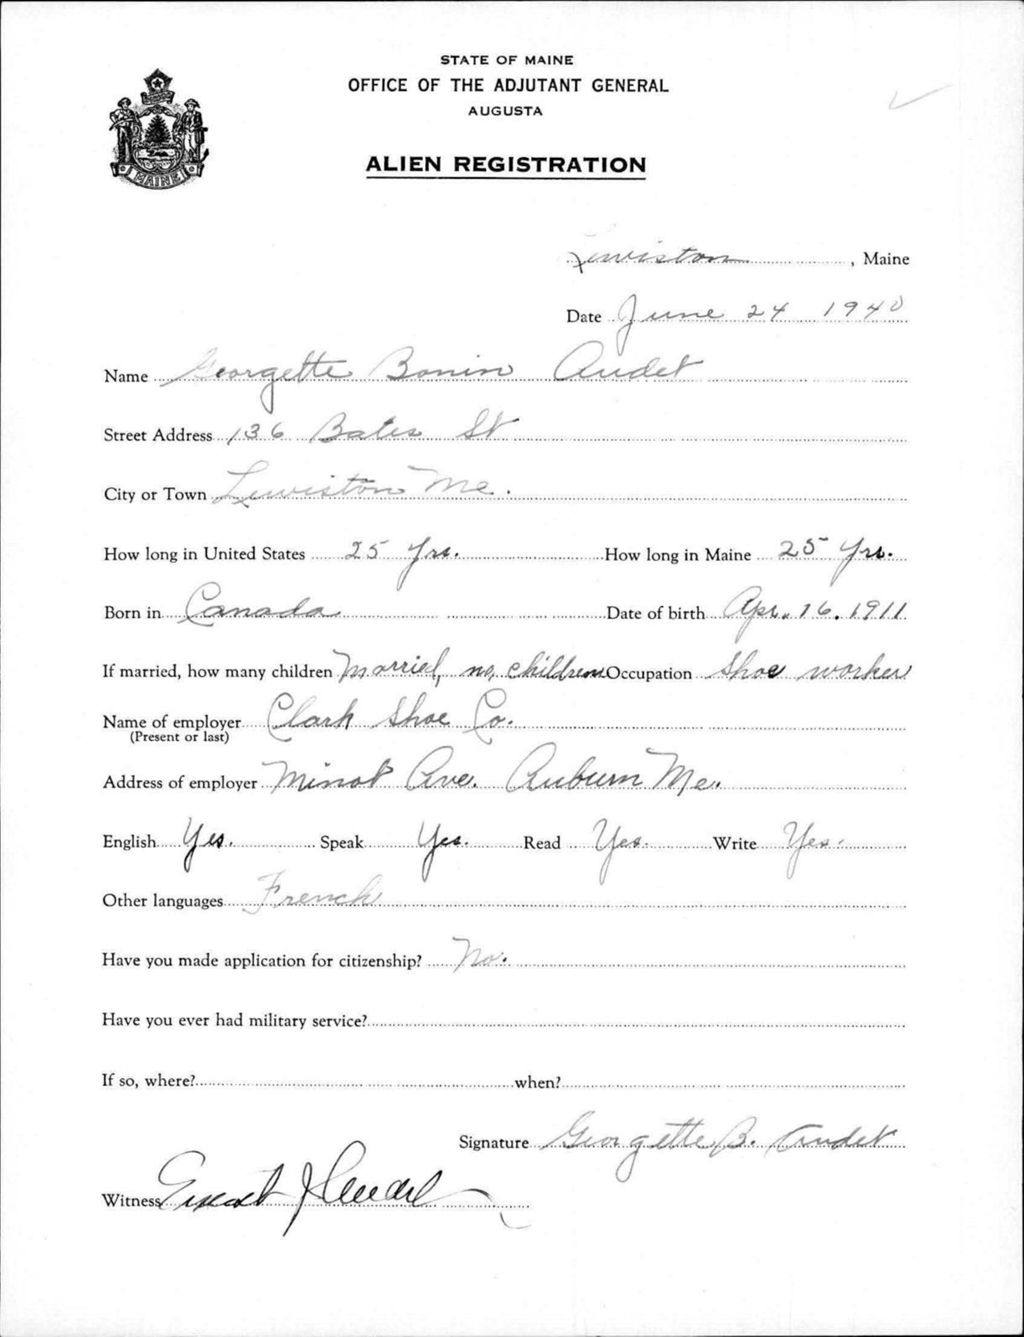 STATE OF MAINE
OFFICE OF THE ADJUTANT GENERAL
AUGUSTA
MAINE
ALIEN REGISTRATION
Lewiston, Maine
Date June 24 1940
Name Georgette Bonin Audet
Street Address 136 Bates St
City or Town Lewiston Me.
How long in United States 25 Yrs. How long in Maine 25 Yrs.
Born in Canada Date of birth Apr. 16, 1911
If married, how many children Married, no, children Occupation Shoe worker
Name of employer Clark Shoe Co.
(Present or last)
Address of employer Minot Ave. Auburn Me.
English Yes. Speak Yes. Read Yes. Write Yes.
Other languages French
Have you made application for citizenship? No.
Have you ever had military service?
If so, where? when?
Signature Georgette B. Audet
Witness